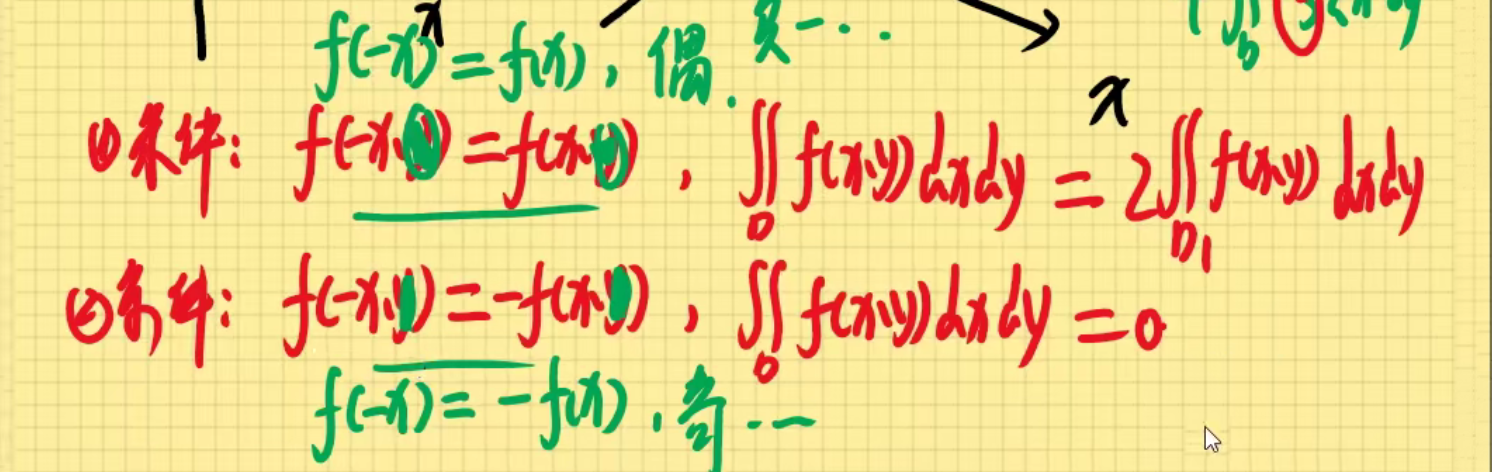 x
f(-x)=f(x), 偶.
①条件: f(-x,y)=f(x,y), ∬_D f(x,y)dxdy = 2∬_{D₁} f(x,y)dxdy
x
②条件: f(-x,y)=-f(x,y), ∬_D f(x,y)dxdy=0
f(-x)=-f(x), 奇...